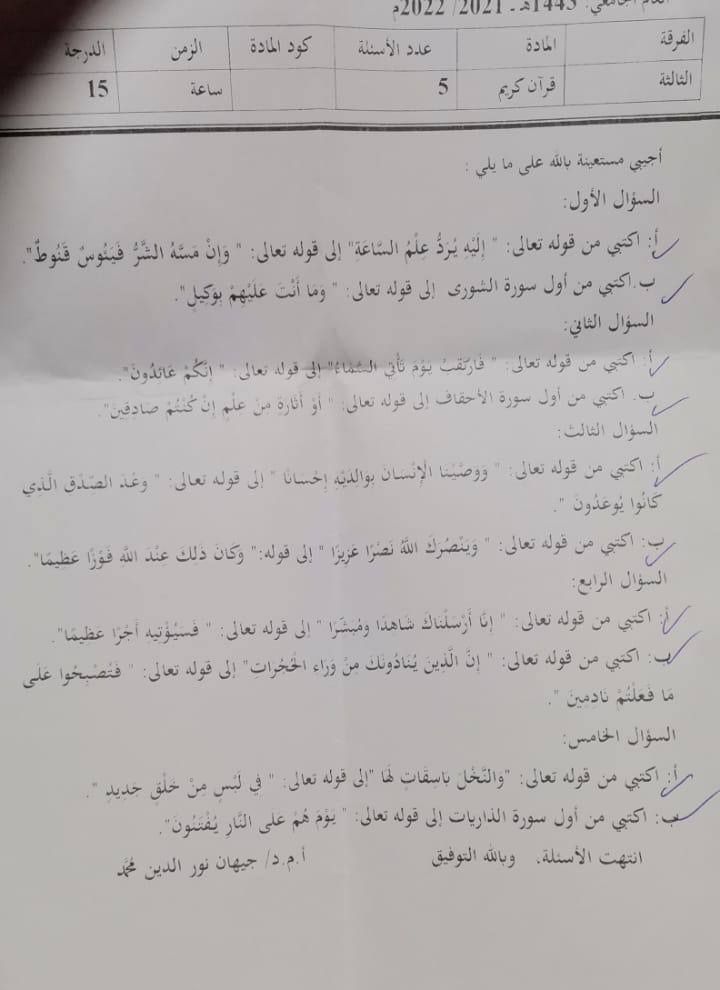 1443هـ - 2021/ 2022م
الفرقة المادة عدد الأسئلة كود المادة الزمن الدرجة
الثالثة قرآن كريم 5 ساعة 15
أجيبي مستعينة بالله على ما يلي :
السؤال الأول:
أ: اكتبي من قوله تعالى: " إِلَيْهِ يُرَدُّ عِلْمُ السَّاعَةِ" إلى قوله تعالى: " وَإِنْ مَسَّهُ الشَّرُّ فَيَئُوسٌ قَنُوطٌ".
ب.اكتبي من أول سورة الشورى إلى قوله تعالى: " وَمَا أَنْتَ عَلَيْهِمْ بِوَكِيلٍ".
السؤال الثاني:
أ: اكتبي من قوله تعالى: " فَارْتَقِبْ يَوْمَ تَأْتِي السَّمَاءُ" إلى قوله تعالى: " إِنَّكُمْ عَائِدُونَ".
ب. اكتبي من أول سورة الأحقاف إلى قوله تعالى: " أَوْ أَثَارَةٍ مِنْ عِلْمٍ إِنْ كُنْتُمْ صَادِقِينَ".
السؤال الثالث:
أ: اكتبي من قوله تعالى: " وَوَصَّيْنَا الْإِنْسَانَ بِوَالِدَيْهِ إِحْسَانًا " إلى قوله تعالى: " وَعْدَ الصِّدْقِ الَّذِي
كَانُوا يُوعَدُونَ ".
ب: اكتبي من قوله تعالى: " وَيَنْصُرَكَ اللَّهُ نَصْرًا عَزِيزًا " إلى قوله:" وَكَانَ ذَلِكَ عِنْدَ اللَّهِ فَوْزًا عَظِيمًا".
السؤال الرابع:
أ: اكتبي من قوله تعالى: " إِنَّا أَرْسَلْنَاكَ شَاهِدًا وَمُبَشِّرًا " إلى قوله تعالى: " فَسَيُؤْتِيهِ أَجْرًا عَظِيمًا".
ب: اكتبي من قوله تعالى: " إِنَّ الَّذِينَ يُنَادُونَكَ مِنْ وَرَاءِ الْحُجُرَاتِ" إلى قوله تعالى: " فَتُصْبِحُوا عَلَى
مَا فَعَلْتُمْ نَادِمِينَ ".
السؤال الخامس:
أ: اكتبي من قوله تعالى: "وَالنَّخْلَ بَاسِقَاتٍ لَهَا "إلى قوله تعالى: " فِي لَبْسٍ مِنْ خَلْقٍ جَدِيدٍ ".
ب: اكتبي من أول سورة الذاريات إلى قوله تعالى: " يَوْمَ هُمْ عَلَى النَّارِ يُفْتَنُونَ".
انتهت الأسئلة، وبالله التوفيق أ.م.د/ جيهان نور الدين محمد